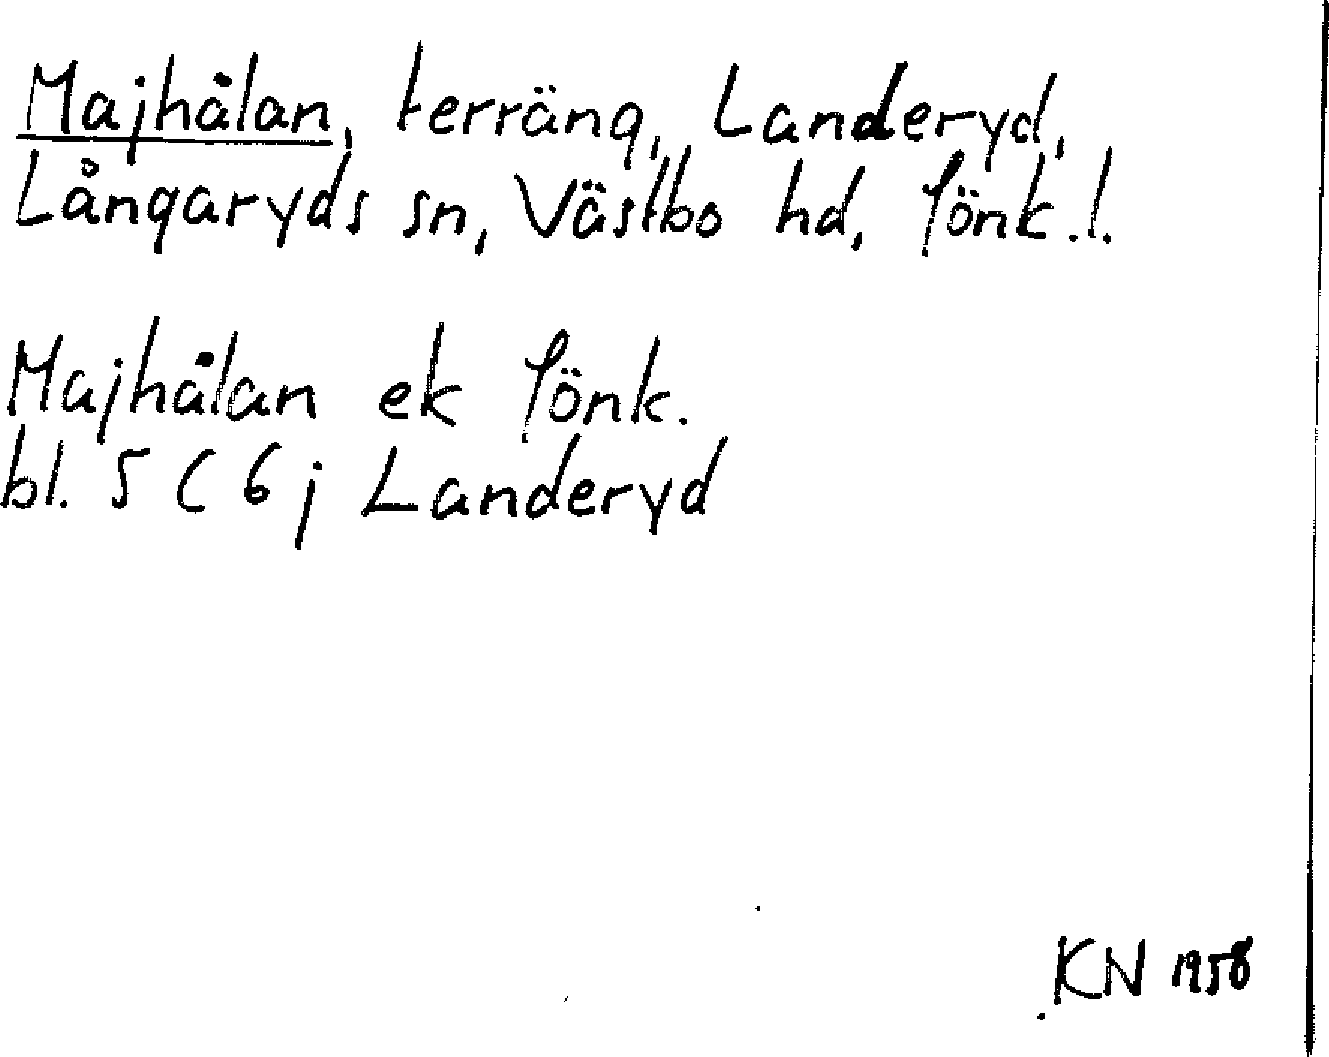 Majhålan, terräng, Landeryd,
Långaryds sn, Västbo hd, Jönk.l.
Majhålan ek Jönk.
bl. 5 C 6 j Landeryd
KN 1958